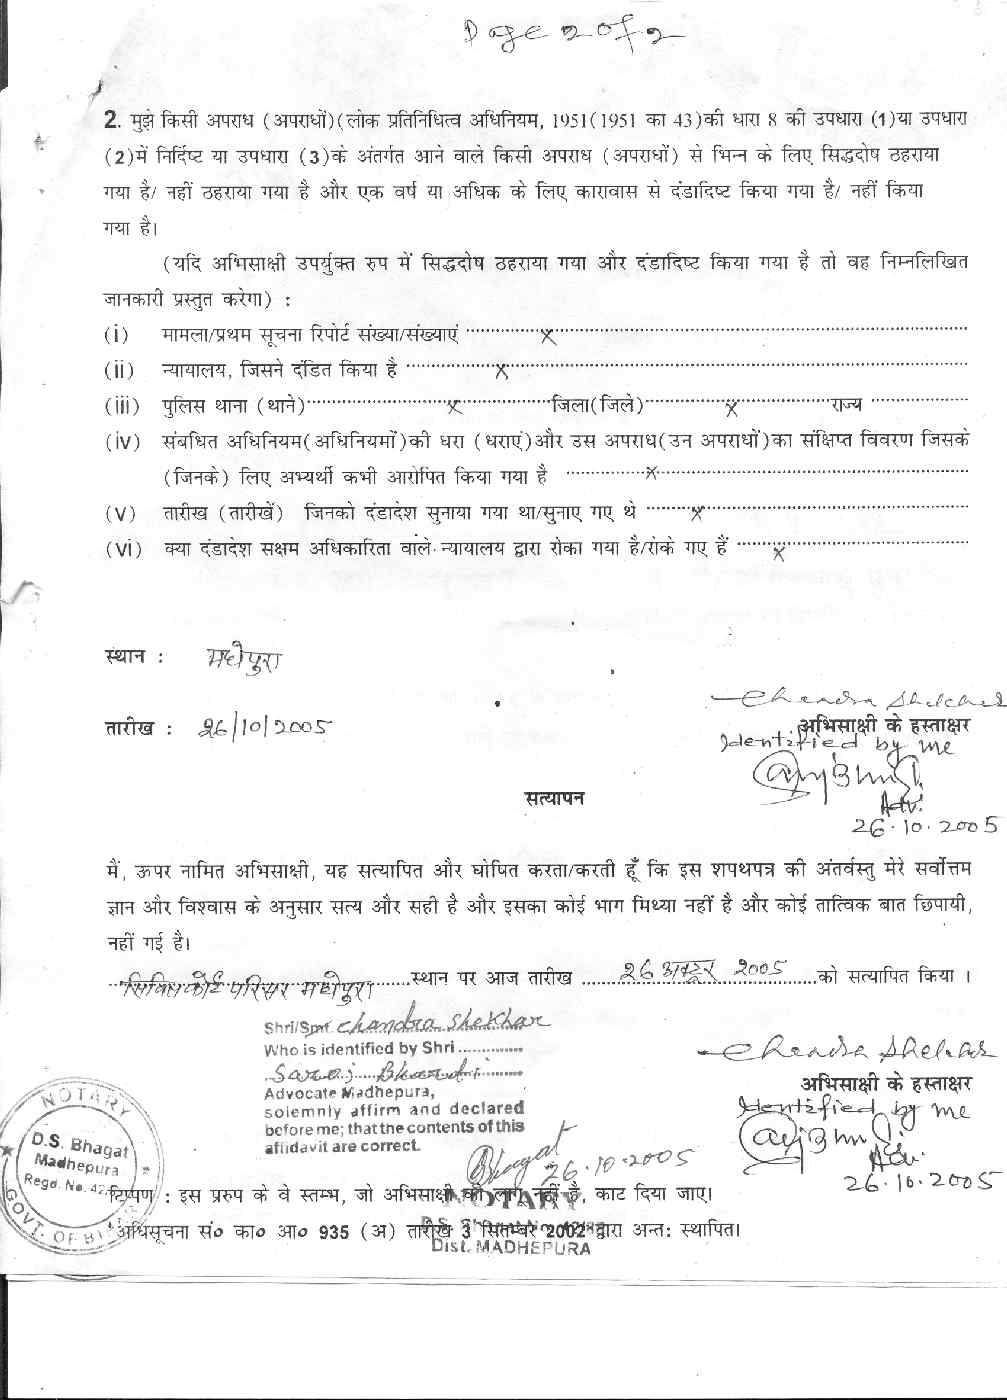 Page 2 of 2
2. मुझे किसी अपराध (अपराधों)(लोक प्रतिनिधित्व अधिनियम, 1951(1951 का 43)की धारा 8 की उपधारा (1)या उपधारा
(2)में निर्दिष्ट या उपधारा (3)के अंतर्गत आने वाले किसी अपराध (अपराधों) से भिन्न के लिए सिद्धदोष ठहराया
गया है/ नहीं ठहराया गया है और एक वर्ष या अधिक के लिए कारावास से दंडादिष्ट किया गया है/ नहीं किया
गया है।
(यदि अभिसाक्षी उपर्युक्त रुप में सिद्धदोष ठहराया गया और दंडादिष्ट किया गया है तो वह निम्नलिखित
जानकारी प्रस्तुत करेगा) :
(i) मामला/प्रथम सूचना रिपोर्ट संख्या/संख्याएं ........ x ........
(ii) न्यायालय, जिसने दंडित किया है ........ x ........
(iii) पुलिस थाना (थाने) ........ x ........ जिला(जिले) ........ x ........ राज्य ........
(iv) संबधित अधिनियम(अधिनियमों)की धरा (धराएं)और उस अपराध(उन अपराधों)का संक्षिप्त विवरण जिसके
(जिनके) लिए अभ्यर्थी कभी आरोपित किया गया है ........ x ........
(v) तारीख (तारीखें) जिनको दंडादेश सुनाया गया था/सुनाए गए थे ........ x ........
(vi) क्या दंडादेश सक्षम अधिकारिता वाले न्यायालय द्वारा रोका गया है/रोके गए हैं ........ x ........
स्थान : मधेपुरा
Chandra Shekhar
तारीख : 26/10/2005
अभिसाक्षी के हस्ताक्षर
Identified by me
Adv.
26.10.2005
सत्यापन
मैं, ऊपर नामित अभिसाक्षी, यह सत्यापित और घोषित करता/करती हूँ कि इस शपथपत्र की अंतर्वस्तु मेरे सर्वोत्तम
ज्ञान और विश्वास के अनुसार सत्य और सही है और इसका कोई भाग मिथ्या नहीं है और कोई तात्विक बात छिपायी,
नहीं गई है।
सिविल कोर्ट परिसर मधेपुरा ........ स्थान पर आज तारीख ........ 26 अक्टूबर 2005 ........ को सत्यापित किया ।
Shri/Smt Chandra Shekhar
Who is identified by Shri ........
Saroj Bharti
Advocate Madhepura,
solemnly affirm and declared
before me; that the contents of this
affidavit are correct.
Chandra Shekhar
अभिसाक्षी के हस्ताक्षर
Identified by me
Adv.
26.10.2005
Bhagat
26.10.2005
NOTARY
D.S. Bhagat
Madhepura
Regd. No. 42
GOVT. OF BIHAR
टिप्पण : इस प्ररुप के वे स्तम्भ, जो अभिसाक्षी को लागू नहीं है, काट दिया जाए।
NOTARY
अधिसूचना सं० का० आ० 935 (अ) तारीख 3 सितम्बर 2002 द्वारा अन्त: स्थापित।
Dist. MADHEPURA